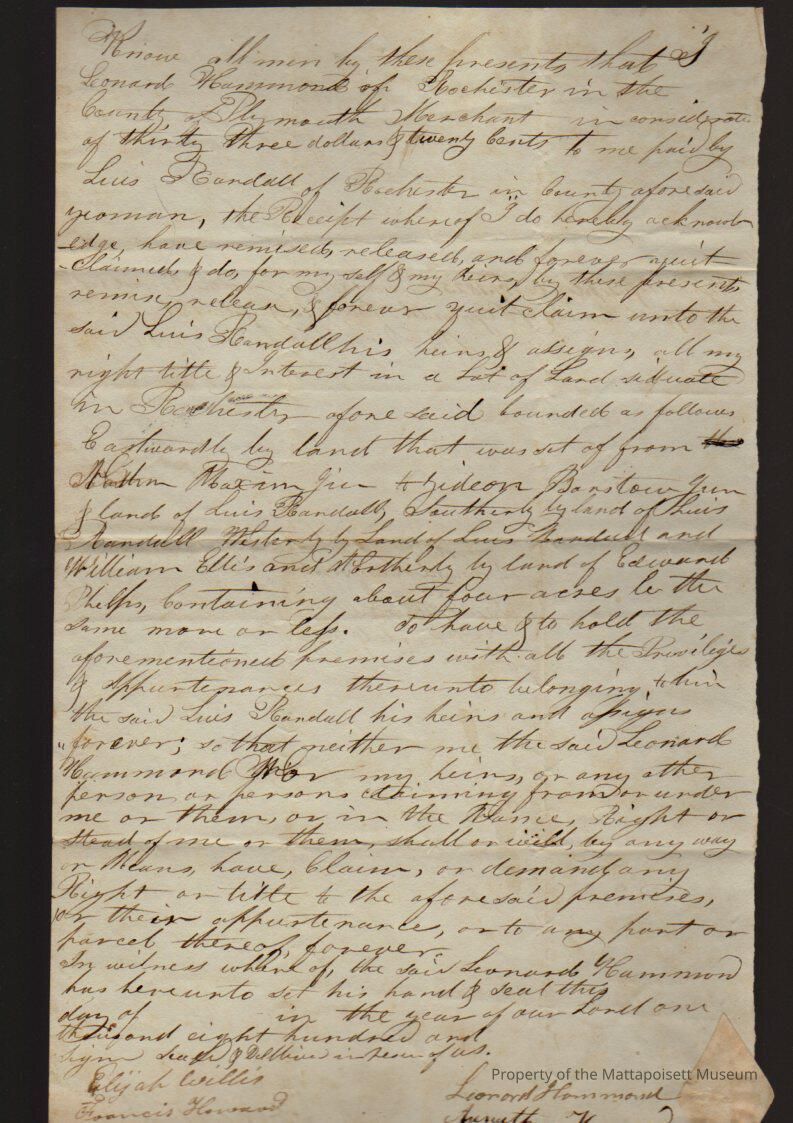 Know all men by these presents that I
Leonard Hammond of Rochester in the
County of Plymouth Merchant in consideration
of thirty three dollars & twenty Cents to me paid by
Luis Randall of Rochester in County aforesaid
yeoman, the Receipt whereof I do hereby acknowl-
-edge, have remised, released, and forever quit
-claimed, & do, for my self & my heirs, by these presents
remise, release, & forever quit claim unto the
said Luis Randall his heirs & assigns, all my
right title & Interest in a Lot of Land situate
in Rochester afore said bounded as follows
Eastwardly by land that was set of from
Maxim Jun to Gideon Barstow Jun
& land of Luis Randall, Southerly by land of Luis
Randall Westerly by Land of Luis Randall and
William Ellis and Northerly by land of Edward
Phelps, Containing about four acres be the
same more or less. To have & to hold the
aforementioned premises with all the Privileges
& Appurtenances thereunto belonging to him
the said Luis Randall his heirs and assigns
forever; so that neither me the said Leonard
Hammond nor my heirs, or any other
person or persons claiming from or under
me or them, or in the Name, Right or
Stead of me or them, shall or will, by any way
or Means, have, Claim, or demand any
Right or title to the aforesaid premises,
or their appurtenance, or to any part or
parcel thereof, forever.
In witness whereof, the said Leonard Hammond
has hereunto set his hand & seal this
day of in the year of our Lord one
thousand eight hundred and
Sign Seald & Dellivered in of us.
Elijah Willis
Francis Howard
Leonard Hammond
Property of the Mattapoisett Museum